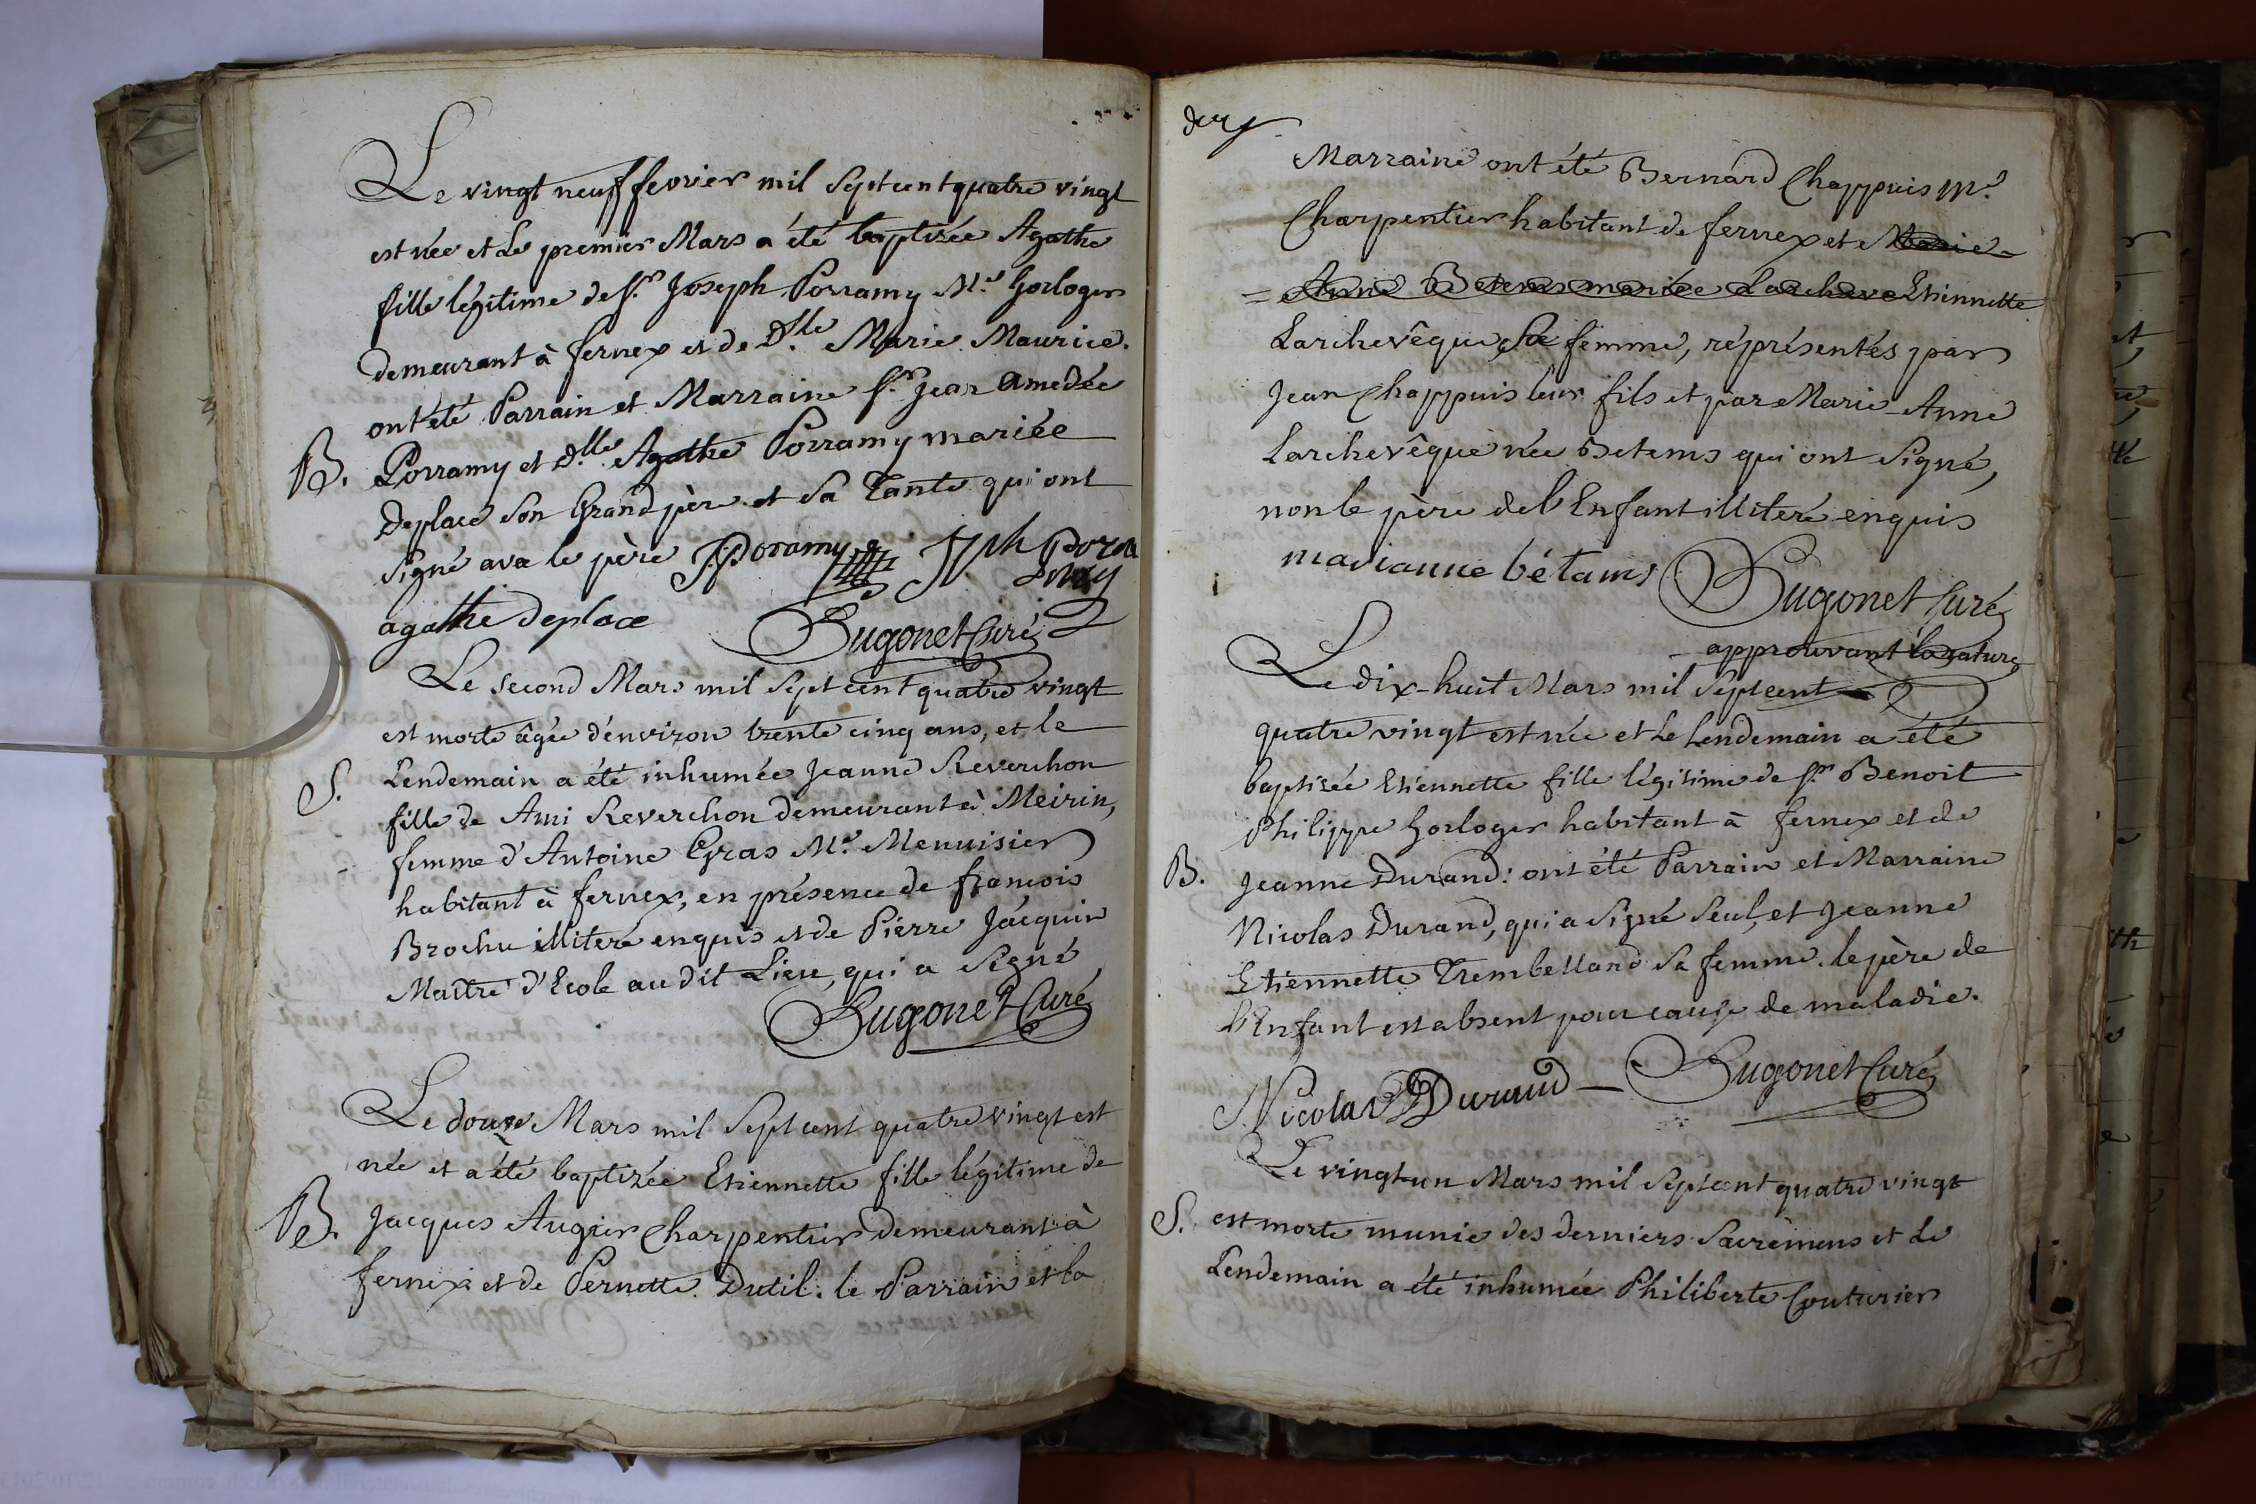 Le vingt neuf fevrier mil Septcentquatre vingt
est née et Le premier Mars a été baptisée Agathe
fille légitime de Sr. Joseph Porramy Me. horloger
demeurant à fernex et de Dlle. Marie Maurice.
ont été Parrain et Marraine Sr. Jean Amedée
B. Porramy et dlle. Agathe Porramy mariée
Deplace Son Grand père et Sa Tante qui ont
Signé avec le père J:Poramy Jph Pora
my
agathe deplace Hugonet Curé
Le Second Mars mil Sept cent quatre vingt
est morte âgée d'environ trente cinq ans, et le
S. Lendemain a été inhumée Jeanne Reverchon
fille de Ami Reverchon demeurant à Meirin,
femme d'Antoine Gras Me. Menuisier
habitant à fernex, en présence de françois
Brochu illiteré enquis et de Pierre Jacquin
Maître d'Ecole audit Lieu, qui a Signé
Hugonet Curé
Le douze Mars mil Sept cent quatre vingt est
née et a été baptizée Etiennette fille légitime de
B. Jacques Augier Charpentier demeurant à
fernex et de Pernette Dutil. le Parrain et la
Marraine ont été Bernard Chappuis Me.
Charpentier habitant de fernex et Marie
Anne Betems mariée Larcheve Etiennette
Larchevêque Sa femme, réprésentés par
Jean Chappuis leur fils et par Marie-Anne
Larchevêque née Betems qui ont Signé,
non le père de l'Enfant illiteré enquis
marianne bétams Hugonet Curé
approuvant la rature
Le dix-huit Mars mil Septcent
quatre vingt est née et Le Lendemain a été
baptisée Etiennette fille légitime de Sr. Benoit
Philippe horloger habitant à fernex et de
B. Jeanne Durand: ont été Parrain et Marraine
Nicolas Durand, qui a Signé Seul, et Jeanne
Etiennette Trembelland Sa femme. le père de
L'Enfant est absent pour cause de maladie.
Nicolas Durand Hugonet Curé
Le vingt-un Mars mil Septcent quatre vingt
S. est morte munie des derniers Sacrémens et Le
Lendemain a été inhumée Philiberte Couturier